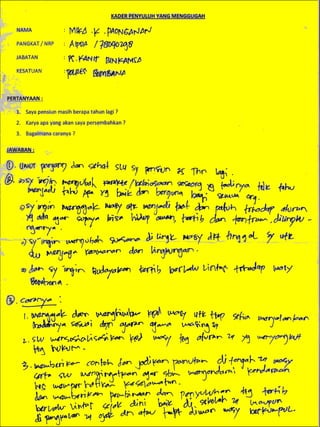 KADER PENYULUH YANG MENGGUGAH
NAMA : MIKA .K. PAONGANAN
PANGKAT / NRP : AIPDA / 78090298
JABATAN : PS. KANIT BINKAMSA
KESATUAN : POLRES BOMBANA
PERTANYAAN :
1. Saya pensiun masih berapa tahun lagi ?
2. Karya apa yang akan saya persembahkan ?
3. Bagaimana caranya ?
JAWABAN :
① Umur panjang dan sehat slu sy pensiun 25 Thn lagi.
② a) sy ingin mengubah karakter/kebiasaan seseorg yg tadinya tdk tahu
menjadi tahu apa yg baik dan berguna bagi semua org.
o) sy ingin mengajak masy utk menjadi taat dan patuh terhadap aturan
yg ada agar supaya bisa hidup aman, tertib dan tentram, dilingku-
ngannya.
o) sy ingin mengubah suasana di lingk masy dkt tinggal sy utk
slu menjaga keamanan dan lingkungan.
o dan sy ingin Budayakan tertib berlalu lintas terhadap masy
Bombana.
③. Caranya :
1. mengajak dan menghimbau kpd masy utk ttap setia menjalankan
ibadahnya sesuai dgn ajaran agama masing2.
2. slu mensosialisasikan kpd masy ttg aturan2 yg menyangkut
ttg hukum.
3. memberikan contoh dan jadikan panutan ditengah2 masy
serta slu mengingatkan agar slm mengendarai kendaraan
memperhatikan keselamatan.
dan memberikan pembinaan dan penyuluhan ttg tertib
berlalu lintas sejak dini baik di sekolah2 maupun
di pangkalan2 ojek dan atau tempat dimana masy berkumpul.